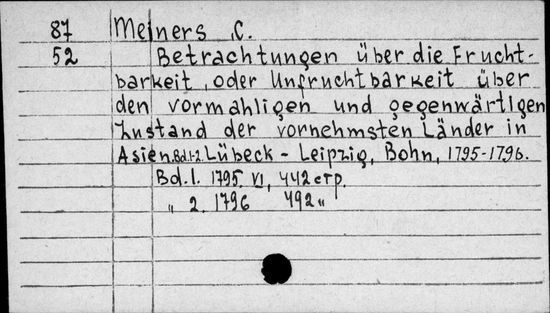 87 Meiners C.
52 Betrachtungen über die Frucht-
barkeit, oder Unfruchtbarkeit über
den vormahligen und gegenwärtigen
Zustand der vornehmsten Länder in
Asien. Bd.1-2. Lübeck - Leipzig, Bohn, 1795-1796.
Bd. 1. 1795. VI, 442 стр.
" 2. 1796 492 "